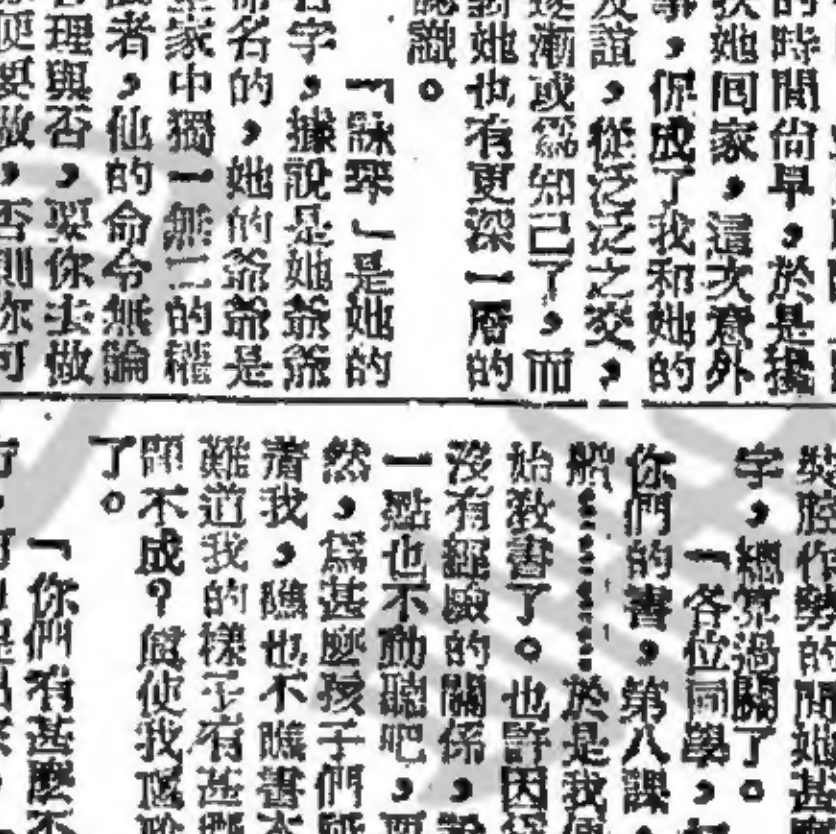 的時間尙早，於是
她回家，這次意外
事，便成了我和她的
友誼，從泛泛之交，
逐漸或爲知己了，而
對她也有更深一層的
認識。
「詠琴」是她的
名字，據說是她爺爺
命名的，她的爺爺是
家中獨一無二的權
者，他的命令無論
合理與否，要你去做
便要做，否則你可
裝腔作勢的問她甚麼
字，總算過關了。
「各位同學，
你們的書，第八課，
船…………於是我便
始敎書了。也許因爲
沒有經驗的關係，
一點也不動聽吧，
然，爲甚麼孩子們
着我，瞧也不瞧書本
難道我的樣子有甚麼
不成？使我
了。
「你們有甚麼不